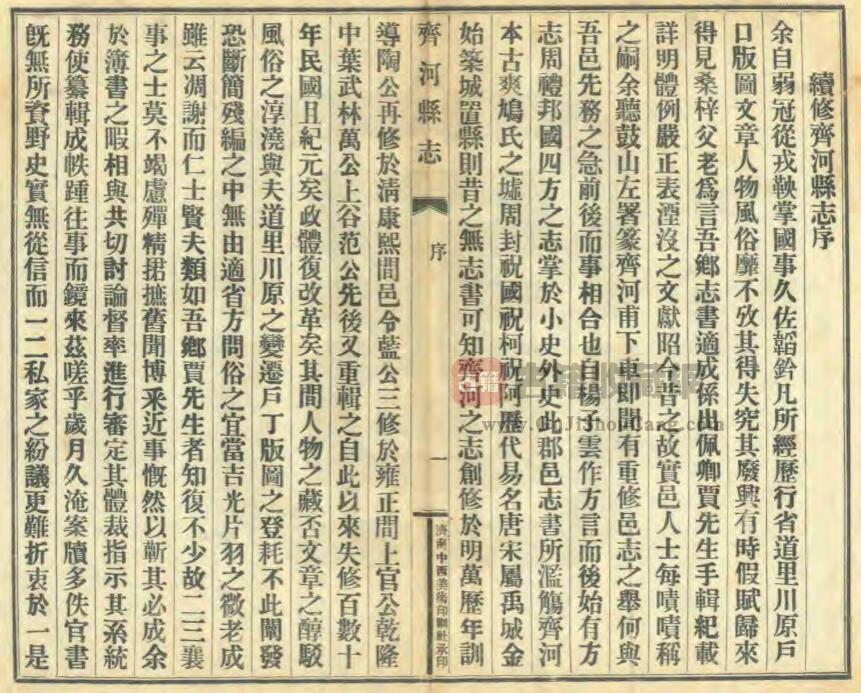 續修齊河縣志序
余自弱冠從戎鞅掌國事久佐韜鈐凡所經歷行省道里川原戶
口版圖文章人物風俗靡不攷其得失究其廢興有時假賦歸來
得見桑梓父老爲言吾鄉志書適成係出佩卿賈先生手輯紀載
詳明體例嚴正表湮沒之文獻昭今昔之故實邑人士每嘖嘖稱
之嗣余聽鼓山左署篆齊河甫下車即聞有重修邑志之舉何與
吾邑先務之急前後而事相合也自揚子雲作方言而後始有方
志周禮邦國四方之志掌於小史外史此郡邑志書所濫觴齊河
本古爽鳩氏之墟周封祝國祝柯祝阿歷代易名唐宋屬禹城金
始築城置縣則昔之無志書可知齊河之志創修於明萬歷年訓
齊河縣志
序
一
濟南中西美術印刷社承印
導陶公再修於淸康熙間邑令藍公三修於雍正間上官公乾隆
中葉武林萬公上谷范公先後又重輯之自此以來失修百數十
年民國且紀元矣政體復改革矣其間人物之藏否文章之醇駁
風俗之淳澆與夫道里川原之變遷戶丁版圖之登耗不此闡發
恐斷簡殘編之中無由適省方問俗之宜當吉光片羽之微老成
雖云凋謝而仁士賢夫類如吾鄕賈先生者知復不少故二三襄
事之士莫不竭慮殫精捃摭舊聞博釆近事慨然以蘄其必成余
於簿書之暇相與共切討論督率進行審定其體裁指示其系統
務使纂輯成帙踵往事而鏡來茲嗟乎歲月久淹案牘多佚官書
旣無所資野史實無從信而一二私家之紛議更難折衷於一是
古籍
古籍收藏網
www.GuJiShouCang.com